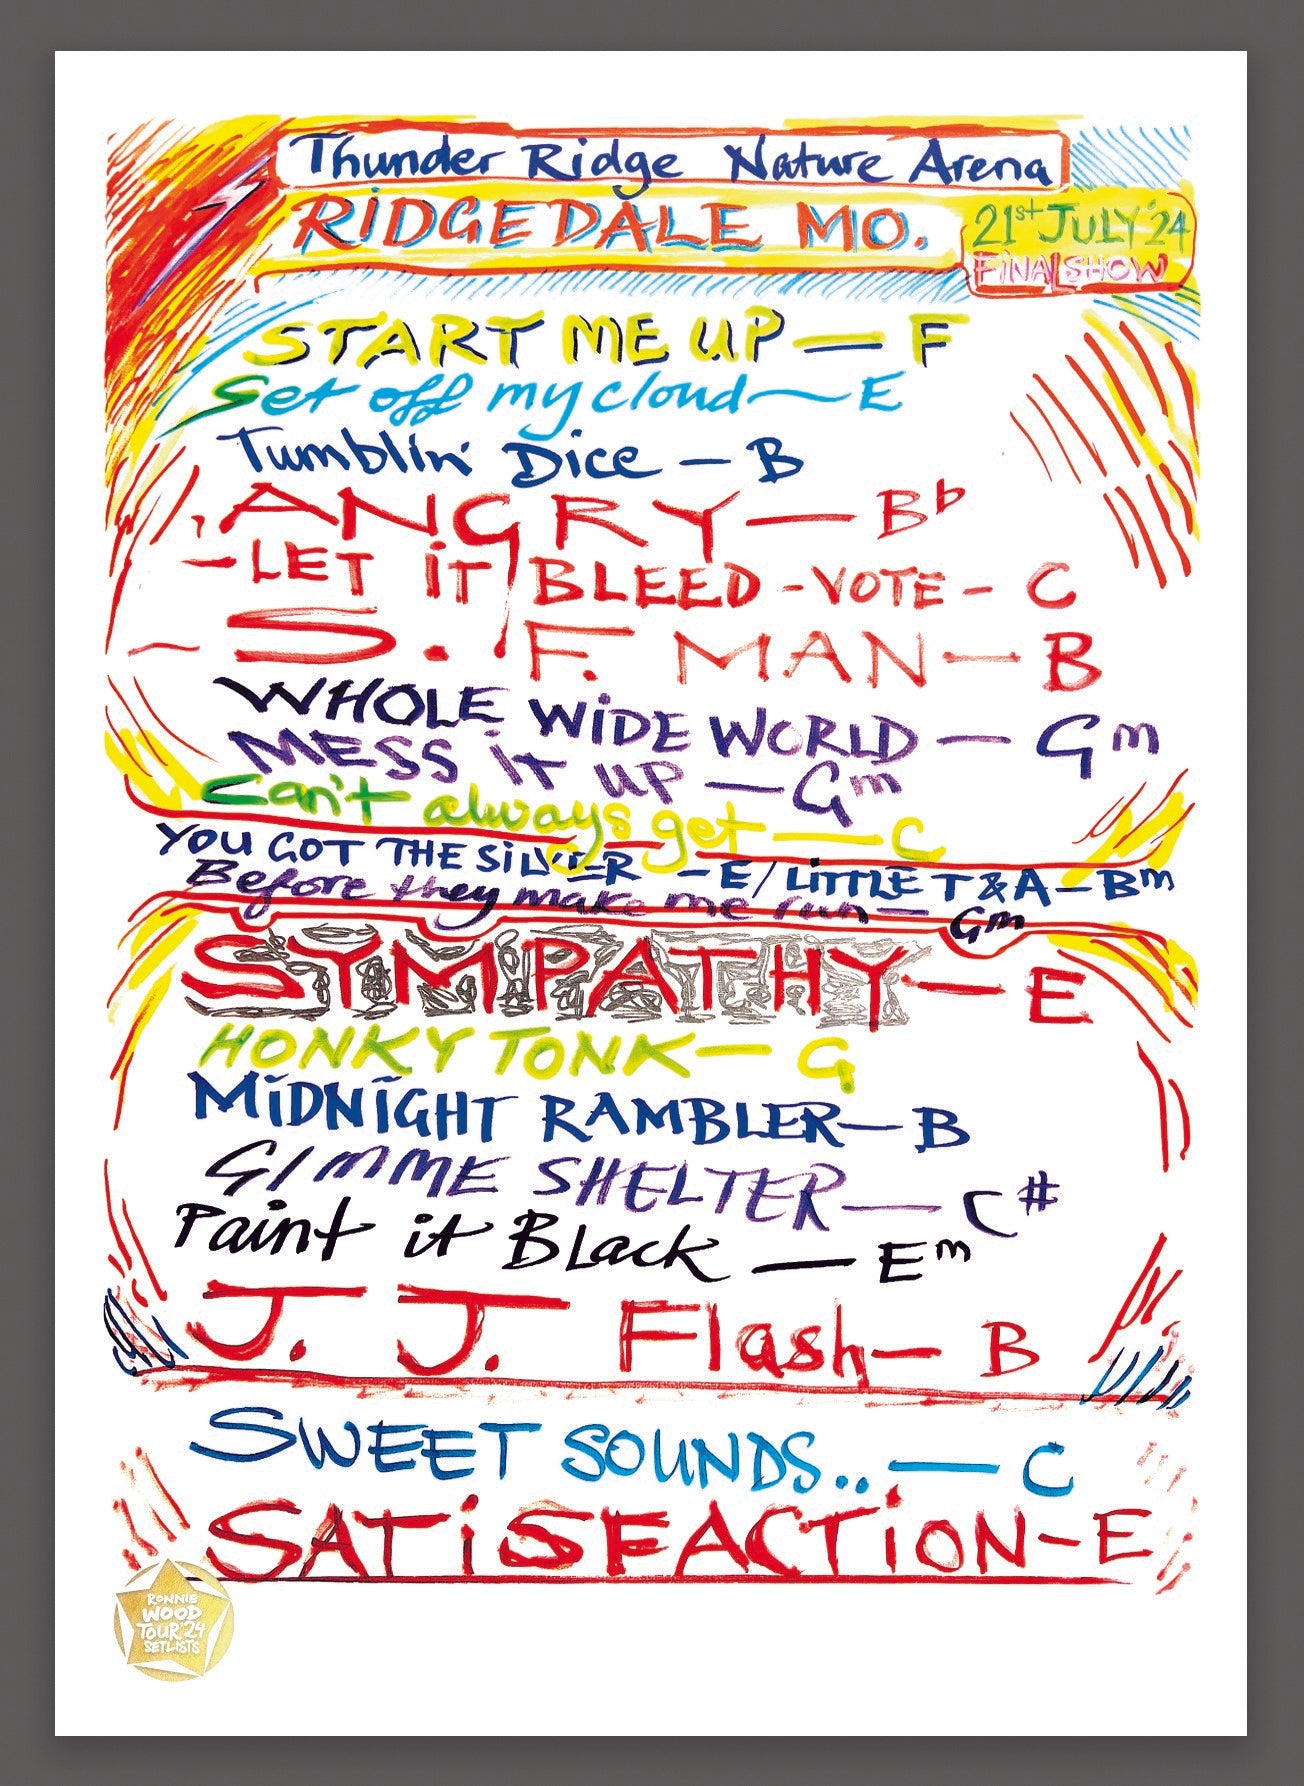 Thunder Ridge Nature Arena
RIDGEDALE MO.
21st JULY '24
FINAL SHOW
START ME UP — F
Get off my cloud — E
Tumblin' Dice — B
ANGRY — B♭
- LET iT BLEED - VOTE - C
S. F. MAN — B
WHOLE WiDE WORLD — Gm
MESS iT UP — Gm
Can't always get — C
YOU GOT THE SiLVER - E / LiTTLE T & A - Bm
Before they make me run — Gm
SYMPATHY — E
HONKY TONK — G
MiDNiGHT RAMBLER — B
GIMME SHELTER — C#
Paint it Black — Em
J. J. Flash — B
SWEET SOUNDS.. — C
SATiSFACTiON - E
RONNIE
WOOD
TOUR '24
SETLISTS